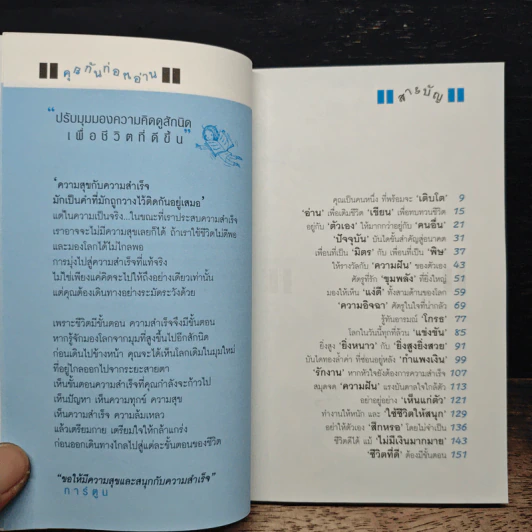 คุยกันก่อนอ่าน
"ปรับมุมมองความคิดดูสักนิด
เพื่อชีวิตที่ดีขึ้น"
'ความสุขกับความสำเร็จ
มักเป็นคำที่มักถูกวางไว้ติดกันอยู่เสมอ'
แต่ในความเป็นจริง...ในขณะที่เราประสบความสำเร็จ
เราอาจจะไม่มีความสุขเลยก็ได้ ถ้าเราใช้ชีวิตไม่ดีพอ
และมองโลกได้ไม่ไกลพอ
การมุ่งไปสู่ความสำเร็จที่แท้จริง
ไม่ใช่เพียงแค่คิดจะไปให้ถึงอย่างเดียวเท่านั้น
แต่คุณต้องเดินทางอย่างระมัดระวังด้วย
เพราะชีวิตมีขั้นตอน ความสำเร็จจึงมีขั้นตอน
หากรู้จักมองโลกจากมุมที่สูงขึ้นไปอีกสักนิด
ก่อนเดินไปข้างหน้า คุณจะได้เห็นโลกเดิมในมุมใหม่
ที่อยู่ไกลออกไปจากระยะสายตา
เห็นขั้นตอนความสำเร็จที่คุณกำลังจะก้าวไป
เห็นปัญหา เห็นความทุกข์ ความสุข
เห็นความสำเร็จ ความล้มเหลว
แล้วเตรียมกาย เตรียมใจให้กล้าแกร่ง
ก่อนออกเดินทางไกลไปสู่แต่ละขั้นตอนของชีวิต
"ขอให้มีความสุขและสนุกกับความสำเร็จ"
การ์ตูน
สารบัญ
คุณเป็นคนหนึ่ง ที่พร้อมจะ 'เติบโต' 9
'อ่าน' เพื่อเติมชีวิต 'เขียน' เพื่อทบทวนชีวิต 15
อยู่กับ 'ตัวเอง' ให้มากกว่าอยู่กับ 'คนอื่น' 21
'ปัจจุบัน' บันไดขั้นสำคัญสู่อนาคต 31
เพื่อนที่เป็น 'มิตร' กับ เพื่อนที่เป็น 'พิษ' 37
ให้รางวัลกับ 'ความฝัน' ของตัวเอง 43
ศัตรูที่รัก 'ขุมพลัง' ที่ยิ่งใหญ่ 51
มองให้เห็น 'แง่ดี' ทั้งสามด้านของโลก 59
'ความอิจฉา' ศัตรูในใจที่น่ากลัว 69
รู้ทันอารมณ์ 'โกรธ' 77
โลกในวันนี้ทุกที่ล้วน 'แข่งขัน' 85
ยิ่งสูง 'ยิ่งหนาว' กับ 'ยิ่งสูงยิ่งสวย' 91
บันไดทองล้ำค่า ที่ซ่อนอยู่หลัง 'กำแพงเงิน' 99
'รักงาน' หากหัวใจยังต้องการความสำเร็จ 107
สมุดจด 'ความฝัน' แรงบันดาลใจใกล้ตัว 113
อย่าอยู่อย่าง 'เห็นแก่ตัว' 121
ทำงานให้หนัก และ 'ใช้ชีวิตให้สนุก' 129
อย่าให้ตัวเอง 'สึกหรอ' โดยไม่จำเป็น 136
ชีวิตดีได้ แม้ 'ไม่มีเงินมากมาย' 143
'ชีวิตที่ดี' ต้องมีขั้นตอน 151